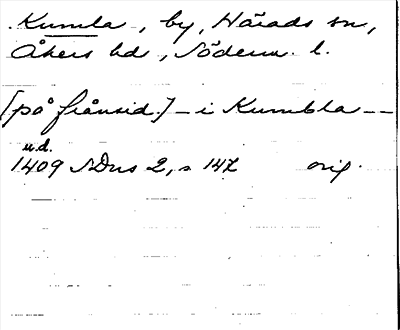 Kumla, by, Härads sn,
Åkers hd, Söderm. l.
[på frånsid.] – i Kumbla – –
u.d.
1409 SDns 2, s 147 orig.